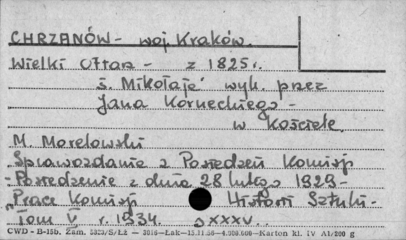 CHRZANÓW - woj. Kraków.
Wielki Ołtarz - z 1825 r.
ś. Mikołaje wyk. przez
Jana Korneckiego -
w Kościele.
M. Morelowski
"Sprawozdanie z Posiedzeń Komisji
- Posiedzenie z dnia 28 lutego 1929 -
"Prace Komisji Historii Sztuki -
Tom V r. 1934. s XXXV.
CWD - B-15b. Zam. S/Łż - Łak - 15.11.56 - 4.000.000 - Karton kl. IV A1/200 g